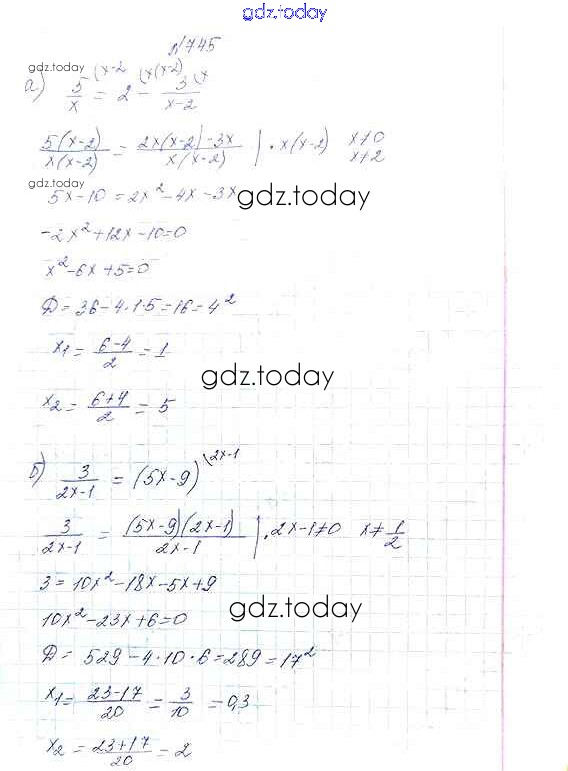 gdz.today
№745
gdz.today
а) 5/x (x-2 = 2 (x(x-2) - 3/(x-2) (x
5(x-2)/x(x-2) = (2x(x-2)-3x)/x(x-2) | · x(x-2) x≠0 x≠2
gdz.today
5x-10=2x²-4x-3x
gdz.today
-2x²+12x-10=0
x²-6x+5=0
Д=36-4·1·5=16=4²
x1=(6-4)/2=1
gdz.today
x2=(6+4)/2=5
б) 3/(2x-1) = (5x-9) (2x-1
3/(2x-1) = (5x-9)(2x-1)/(2x-1) | · 2x-1≠0 x≠1/2
3=10x²-18x-5x+9
gdz.today
10x²-23x+6=0
Д=529-4·10·6=289=17²
x1=(23-17)/20=3/10=0,3
x2=(23+17)/20=2